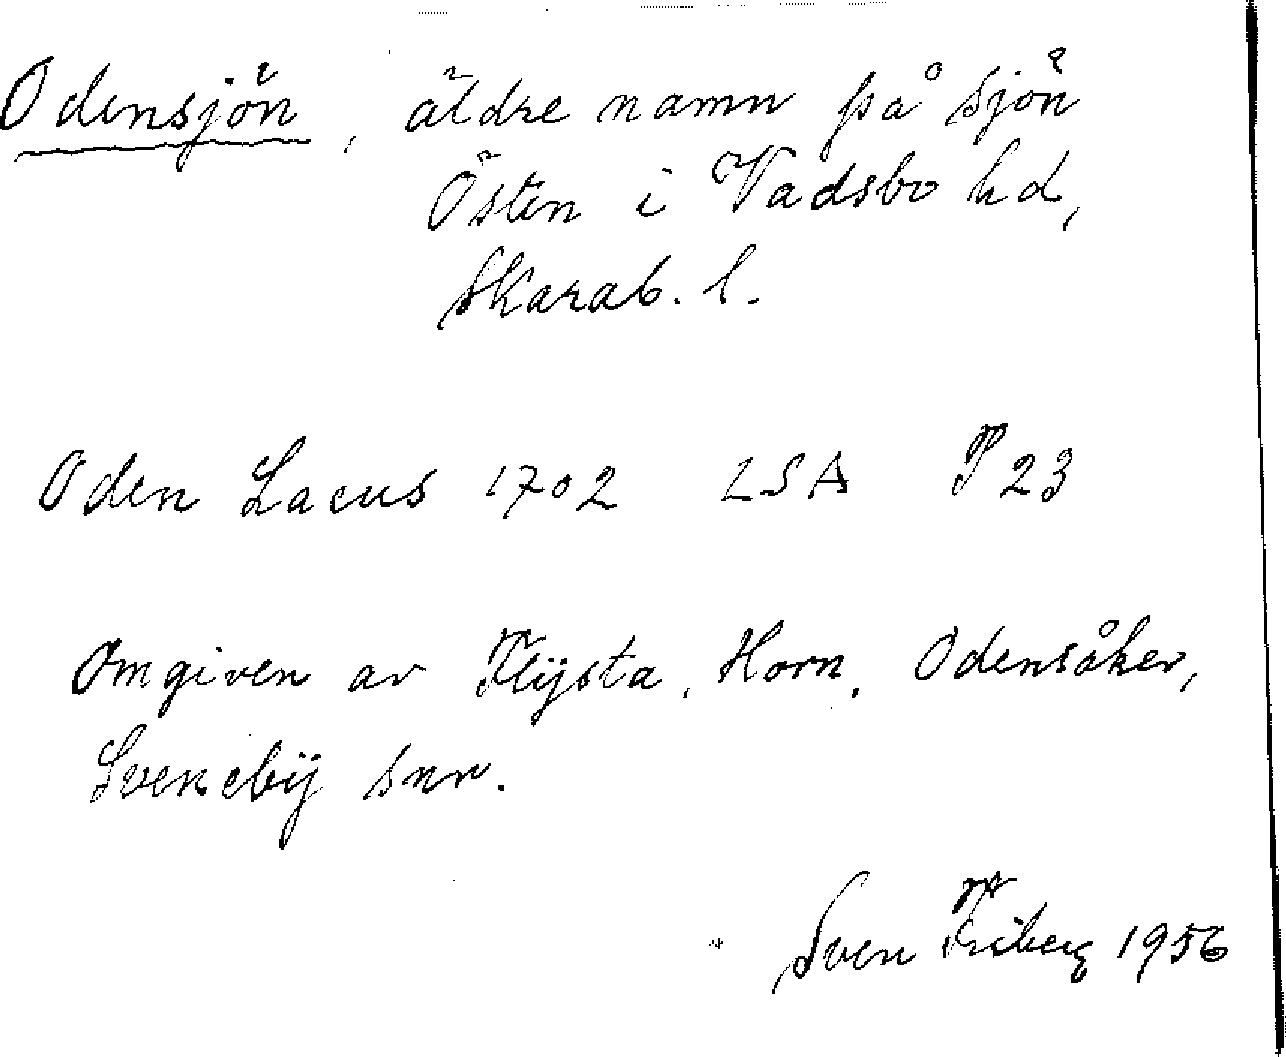 Odensjön, äldre namn på sjön
Östen i Vadsbo hd,
Skarab. l.
Oden Lacus 1702 LSA P 23
Omgiven av Flÿsta, Horn, Odensåker,
Sveneby snr.
Sven Friberg 1956